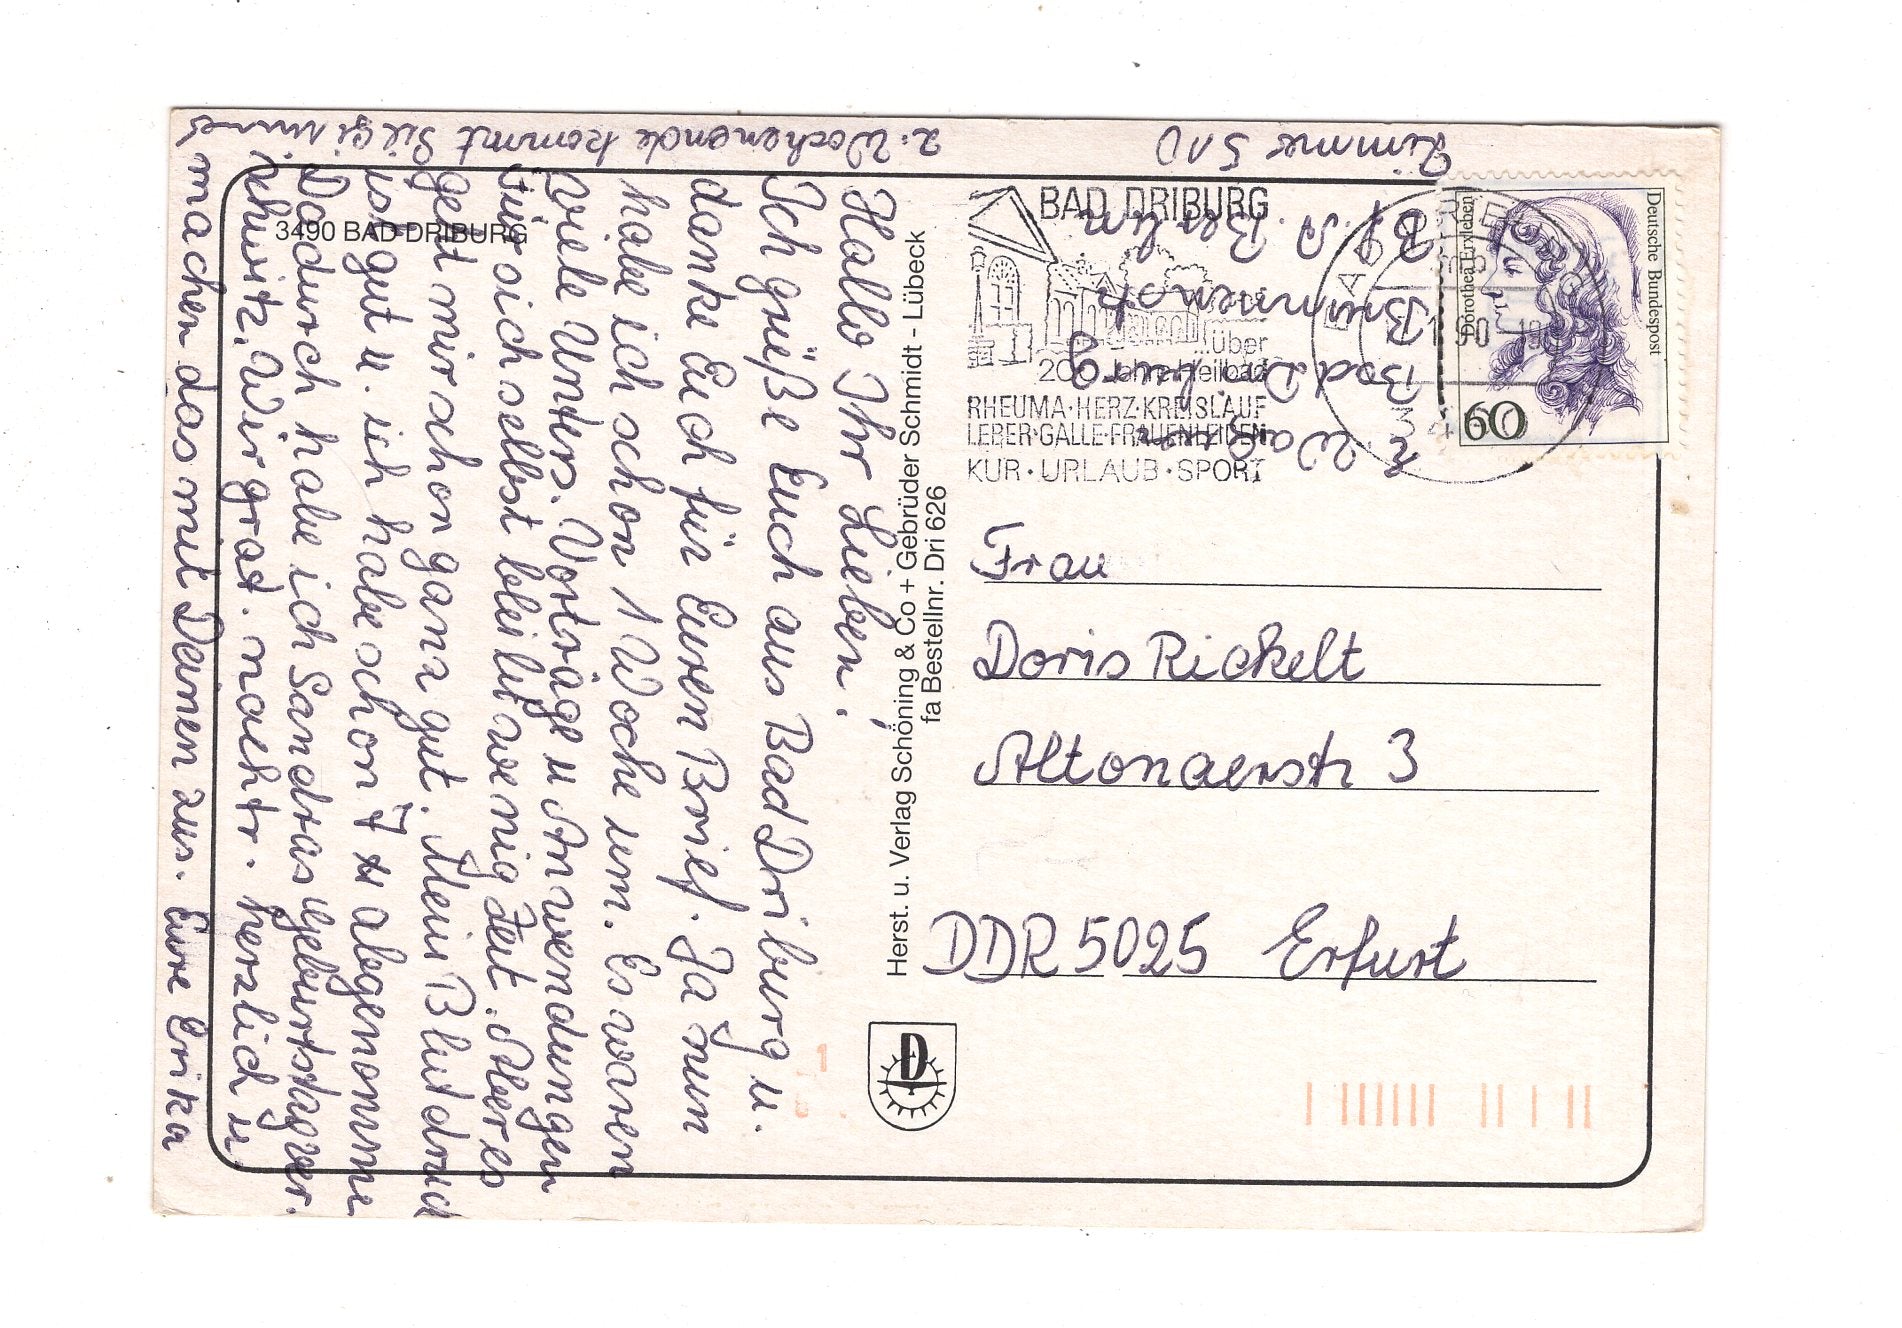 3490 BAD DRIBURG
Hallo Ihr Lieben!
Ich grüße Euch aus Bad Driburg u.
danke Euch für Euren Brief. Ja nun
habe ich schon 1 Woche um. Es waren
viele Unters. Vorträge u Anwendungen
Für sich selbst bleibt wenig Zeit. Aber es
geht mir schon ganz gut. Mein Blutdruck
ist gut u. ich habe schon 7 abgenomme
Dadurch habe ich Sandras Geburtstag
schwitz. Wir grat. nachtr. herzlich u.
machen das mit Damen zus. Eure Erika
2. Wochenende kommt
Zimmer 510
Bad Driburg
Berlin
Herst. u. Verlag Schöning & Co + Gebrüder Schmidt - Lübeck
fa Bestellnr. Dri 626
D
BAD DRIBURG
...über
200 Jahre Heilbad
RHEUMA·HERZ·KREISLAUF
LEBER·GALLE·FRAUENLEIDEN
KUR·URLAUB·SPORT
Deutsche Bundespost
Dorothea Erxleben
60
Frau
Doris Rickelt
Altonaerstr 3
DDR 5025 Erfurt